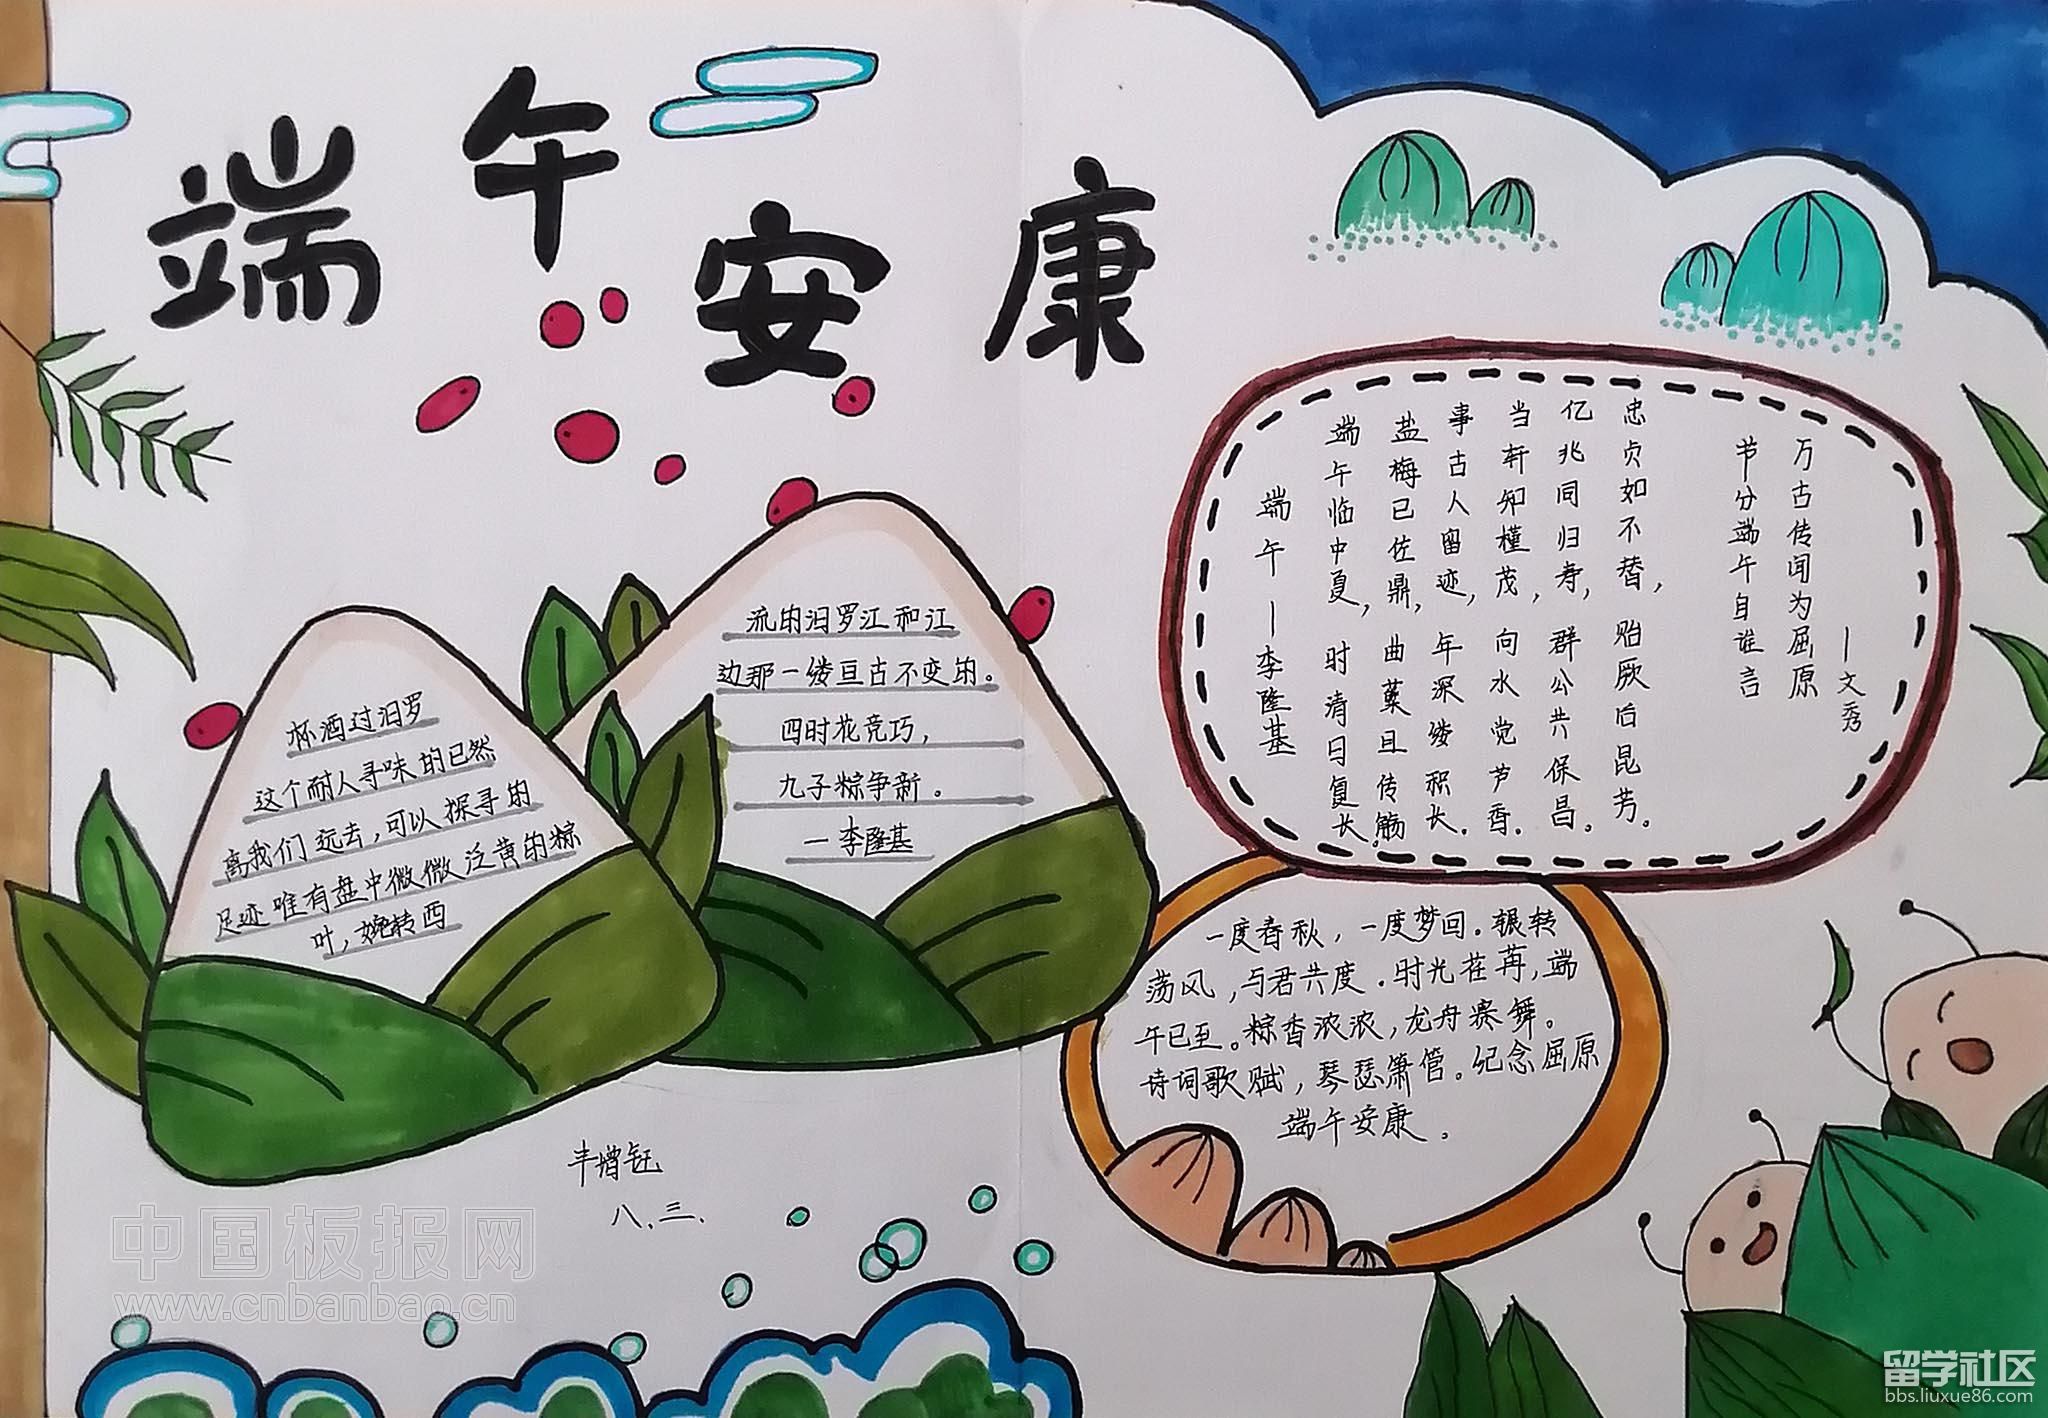 端午安康
杯酒过汨罗
这个耐人寻味的已然
离我们远去，可以探寻的
足迹唯有盘中微微泛黄的粽
叶，婉转西
流的汨罗江和江
边那一缕亘古不变的。
四时花竞巧，
九子粽争新。
—李隆基
端午—李隆基
端午临中夏，时清日复长。
盐梅已佐鼎，曲蘖且传觞。
事古人留迹，年深缕积长。
当轩知槿茂，向水觉芦香。
亿兆同归寿，群公共保昌。
忠贞如不替，贻厥后昆芳。
节分端午自谁言
万古传闻为屈原
—文秀
一度春秋，一度梦回。辗转
荡风，与君共度。时光荏苒，端
午已至。粽香浓浓，龙舟赛舞。
诗词歌赋，琴瑟箫管。纪念屈原
端午安康。
丰增钰
八、三、
中国板报网
www.cnbanbao.cn
留学社区
bbs.liuxue86.com